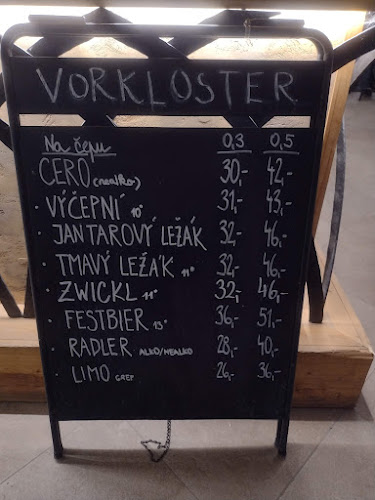 VORKLOSTER
Na čepu 0,3 0,5
CERO (nealko) 30,- 42,-
· VÝČEPNÍ 10° 31,- 43,-
· JANTAROVÝ LEŽÁK 32,- 46,-
· TMAVÝ LEŽÁK 11° 32,- 46,-
· ZWICKL 11° 32,- 46,-
· FESTBIER 13° 36,- 51,-
· RADLER ALKO/NEALKO 28,- 40,-
· LIMO GREP 26,- 36,-